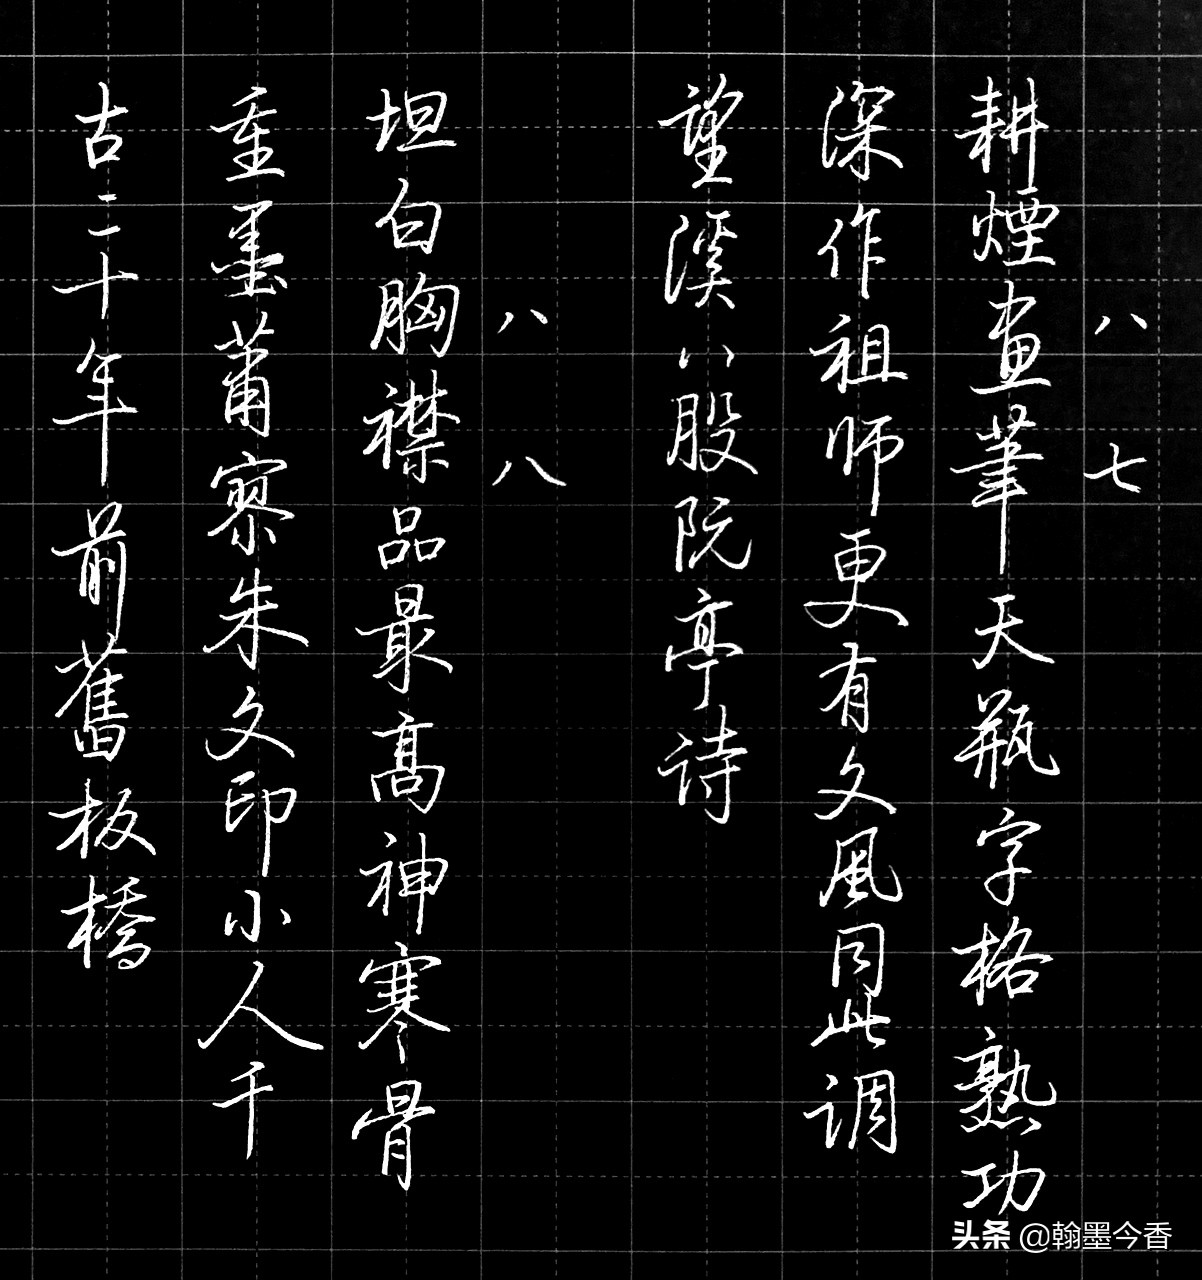 八七
耕煙畫筆天瓶字格熟功
深作祖师更有文風同此调
望溪八股阮亭诗
八八
坦白胸襟品最高神寒骨
重墨萧寥朱文印小人千
古二十年前舊板橋
头条 @翰墨今香